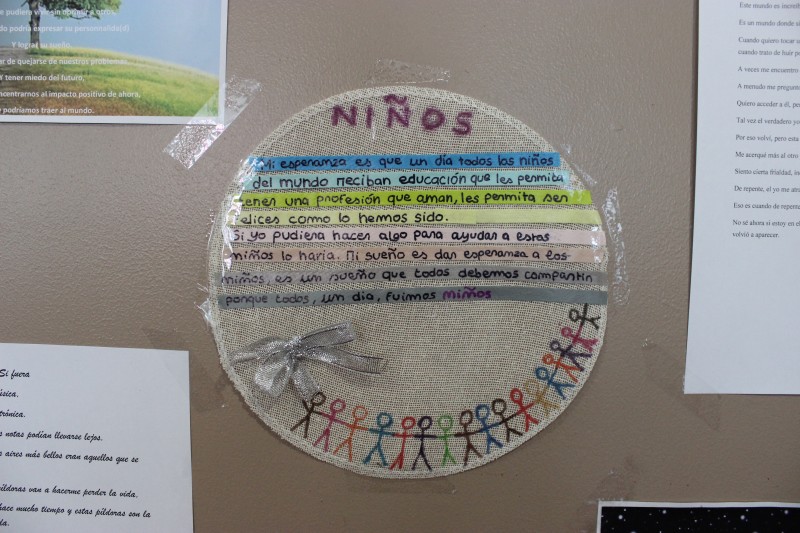 pudiera vivir sin
podría expresar su personnelida(d)
Y lograr su sueño.
de quejarse de nuestros problemas,
Y tener miedo del futuro,
concentrarnos al impacto positivo de ahora,
podríamos traer al mundo.
NIÑOS
Mi esperanza es que un día todos los niños
del mundo reciban educación que les permita
tener una profesión que aman, les permita ser
felices como lo hemos sido.
Si yo pudiera hacer algo para ayudar a estos
niños lo haría. Mi sueño es dar esperanza a los
niños, es un sueño que todos debemos compartir
porque todos, un día, fuimos niños
Si fuera
música.
notas podían llevarse lejos.
aires más bellos eran aquellos que se
píldoras van a hacerme perder la vida.
hace mucho tiempo y estas píldoras son la
Este mundo es
Es un mundo donde
Cuando quiero tocar
cuando trato de huir
A veces me encuentro
A menudo me
Quiero acceder a él,
Tal vez el verdadero
Por eso volví, pero esta
Me acerqué más al otro
Siento cierta frialdad,
De repente, el yo me
Eso es cuando de repente
No sé ahora si estoy en el
volvió a aparecer.